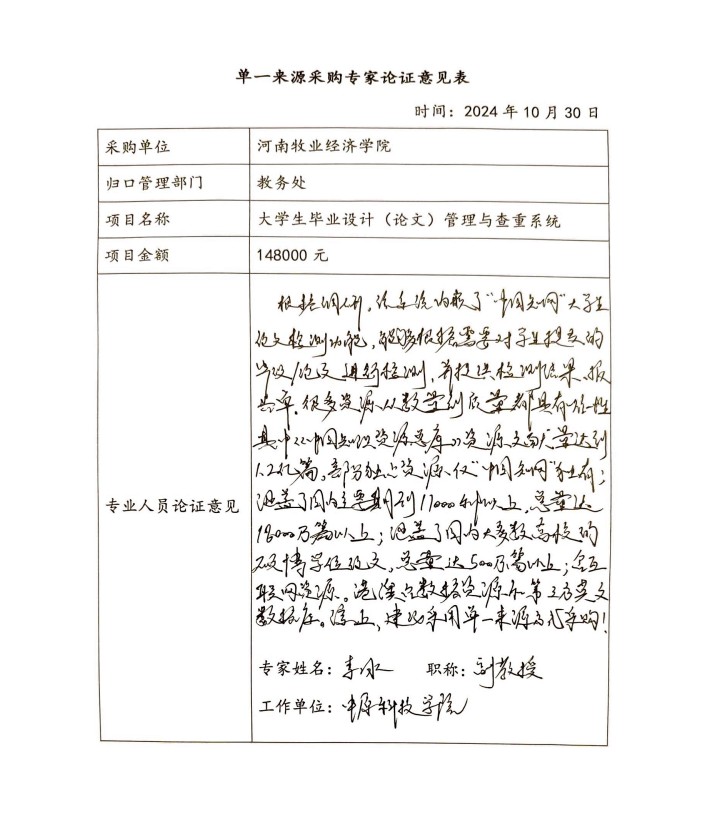 单一来源采购专家论证意见表
时间：2024 年 10 月 30 日
采购单位 河南牧业经济学院
归口管理部门 教务处
项目名称 大学生毕业设计（论文）管理与查重系统
项目金额 148000 元
专业人员论证意见
根据调研，该系统内嵌了“中国知网”大学生
论文检测功能，能够根据需要对学生提交的
毕设/论文进行检测，并提供检测结果、报
告单。很多资源从数量到质量都具有唯一性
其中《中国知识资源总库》资源文献量达到
1.2亿篇，部分独占资源仅“中国知网”独有；
涵盖了国内主要期刊11000种以上，总量达
18000万篇以上；涵盖了国内大多数高校的
硕博学位论文，总量达500万篇以上；含互
联网资源。港澳台数据资源和第三方英文
数据库。综上，建议采用单一来源方式采购！
专家姓名：李冰 职称：副教授
工作单位：中原科技学院